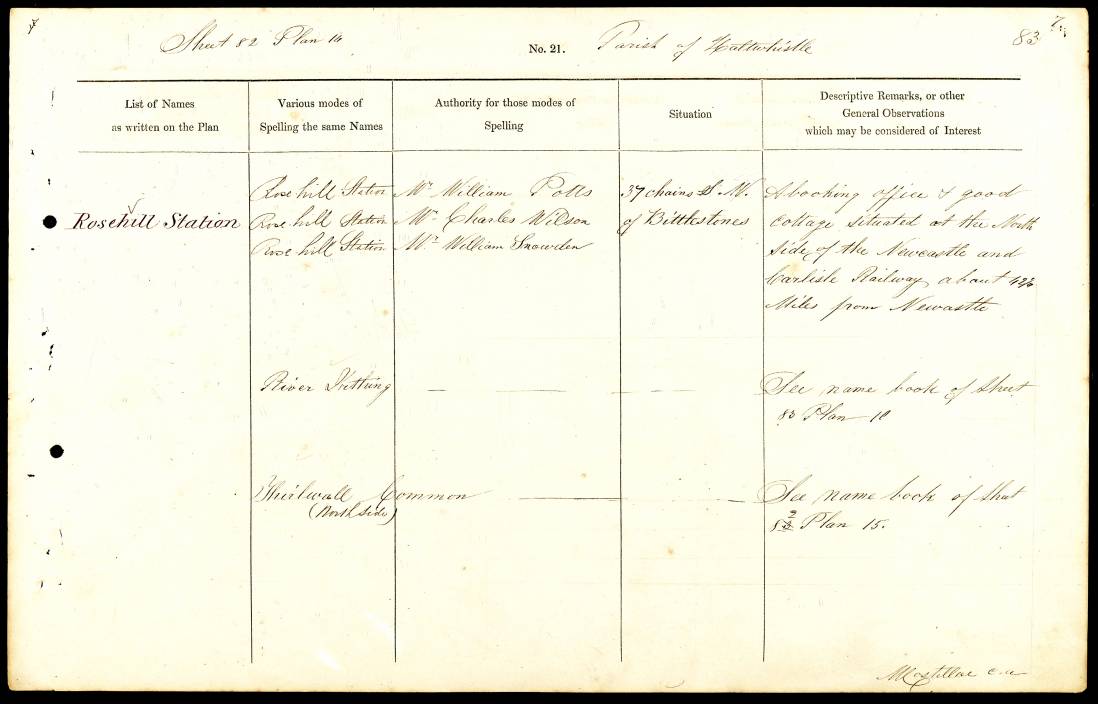 7
7
Sheet 82 Plan 14
No. 21.
Parish of Haltwhistle
83
List of Names
as written on the Plan
Various modes of
Spelling the same Names
Authority for those modes of
Spelling
Situation
Descriptive Remarks, or other
General Observations
which may be considered of Interest
Rosehill Station
Rose hill Station
Rose hill Station
Rose hill Station
Mr William Potts
Mr Charles Wilson
Mr William Snowden
37 chains S W.
of Bittlestones
A booking office & good
cottage situated at the North
side of the Newcastle and
Carlisle Railway about
Miles from Newcastle
River
See name book of Sheet
83 Plan 10
Thirlwall Common
(North side)
See name book of Sheet
82 Plan 15.